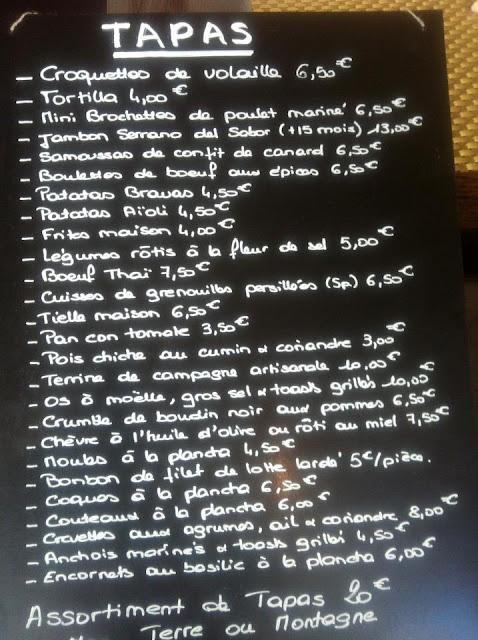 TAPAS
- Croquettes de volaille 6,50€
- Tortilla 4,00€
- Mini Brochettes de poulet mariné 6,50€
- Jambon Serrano del Sabor (+15 mois) 13,00€
- Samoussas de confit de canard 6,50€
- Boulettes de boeuf aux épices 6,50€
- Patatas Bravas 4,50€
- Patatas Aïoli 4,50€
- Frites maison 4,00€
- Légumes rôtis à la fleur de sel 5,00€
- Boeuf Thaï 7,50€
- Cuisses de grenouilles persillées (5p) 6,50€
- Tielle maison 6,50€
- Pan con tomate 3,50€
- Pois chiche au cumin & coriandre 3,00€
- Terrine de campagne artisanale 10,00€
- Os à moëlle, gros sel & toasts grillés 10,00€
- Crumble de boudin noir aux pommes 6,50€
- Chèvre à l'huile d'olive ou rôti au miel 7,50€
- Moules à la plancha 4,50€
- Bonbon de filet de lotte lardé 5€/pièce.
- Coques à la plancha 6,50€
- Couteaux à la plancha 6,00€
- Crevettes aux agrumes, ail & coriandre 8,00€
- Anchois marinés & toasts grillés 4,50€
- Encornets au basilic à la plancha 6,00€
Assortiment de Tapas 20€
Terre ou Montagne